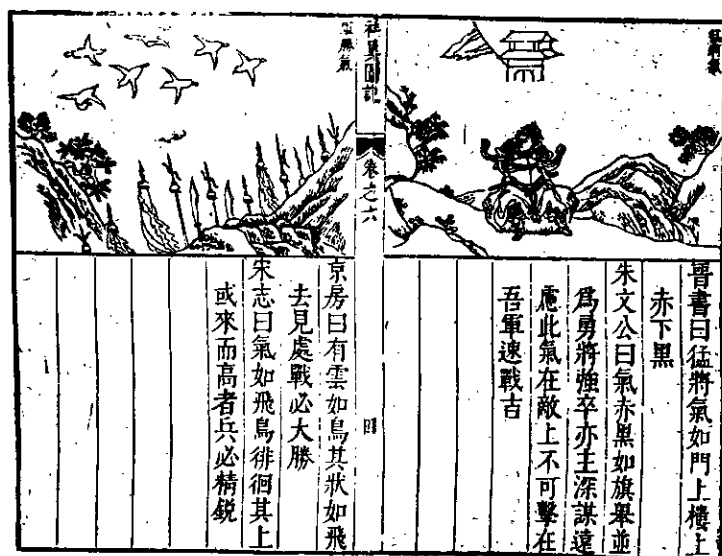 猛將氣
晉書曰猛將氣如門上樓上
赤下黑
朱文公曰氣赤黑如旗舉並
爲勇將強卒亦主深謀遠
慮此氣在敵上不可擊在
吾軍速戰吉
祥異圖記
卷之六
四
勝氣
京房曰有雲如鳥其狀如飛
去見處戰必大勝
宋志曰氣如飛鳥徘徊其上
或來而高者兵必精銳